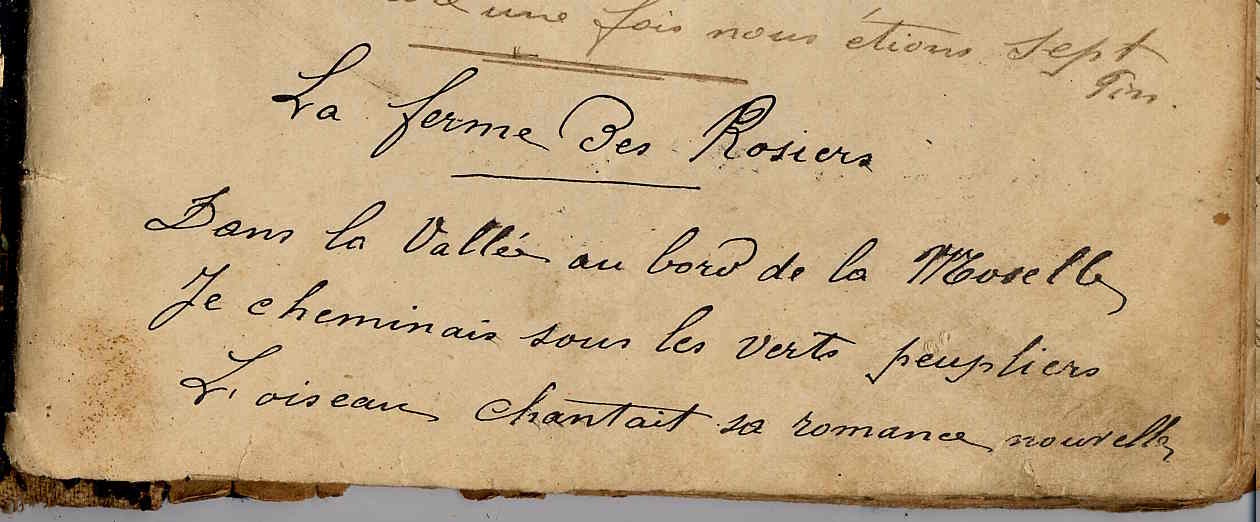 une fois nous étions sept
Fin.
La ferme Des Rosiers
Dans la Vallée au bord de la Moselle
Je cheminais sous les verts peupliers
L'oiseau chantait sa romance nouvelle